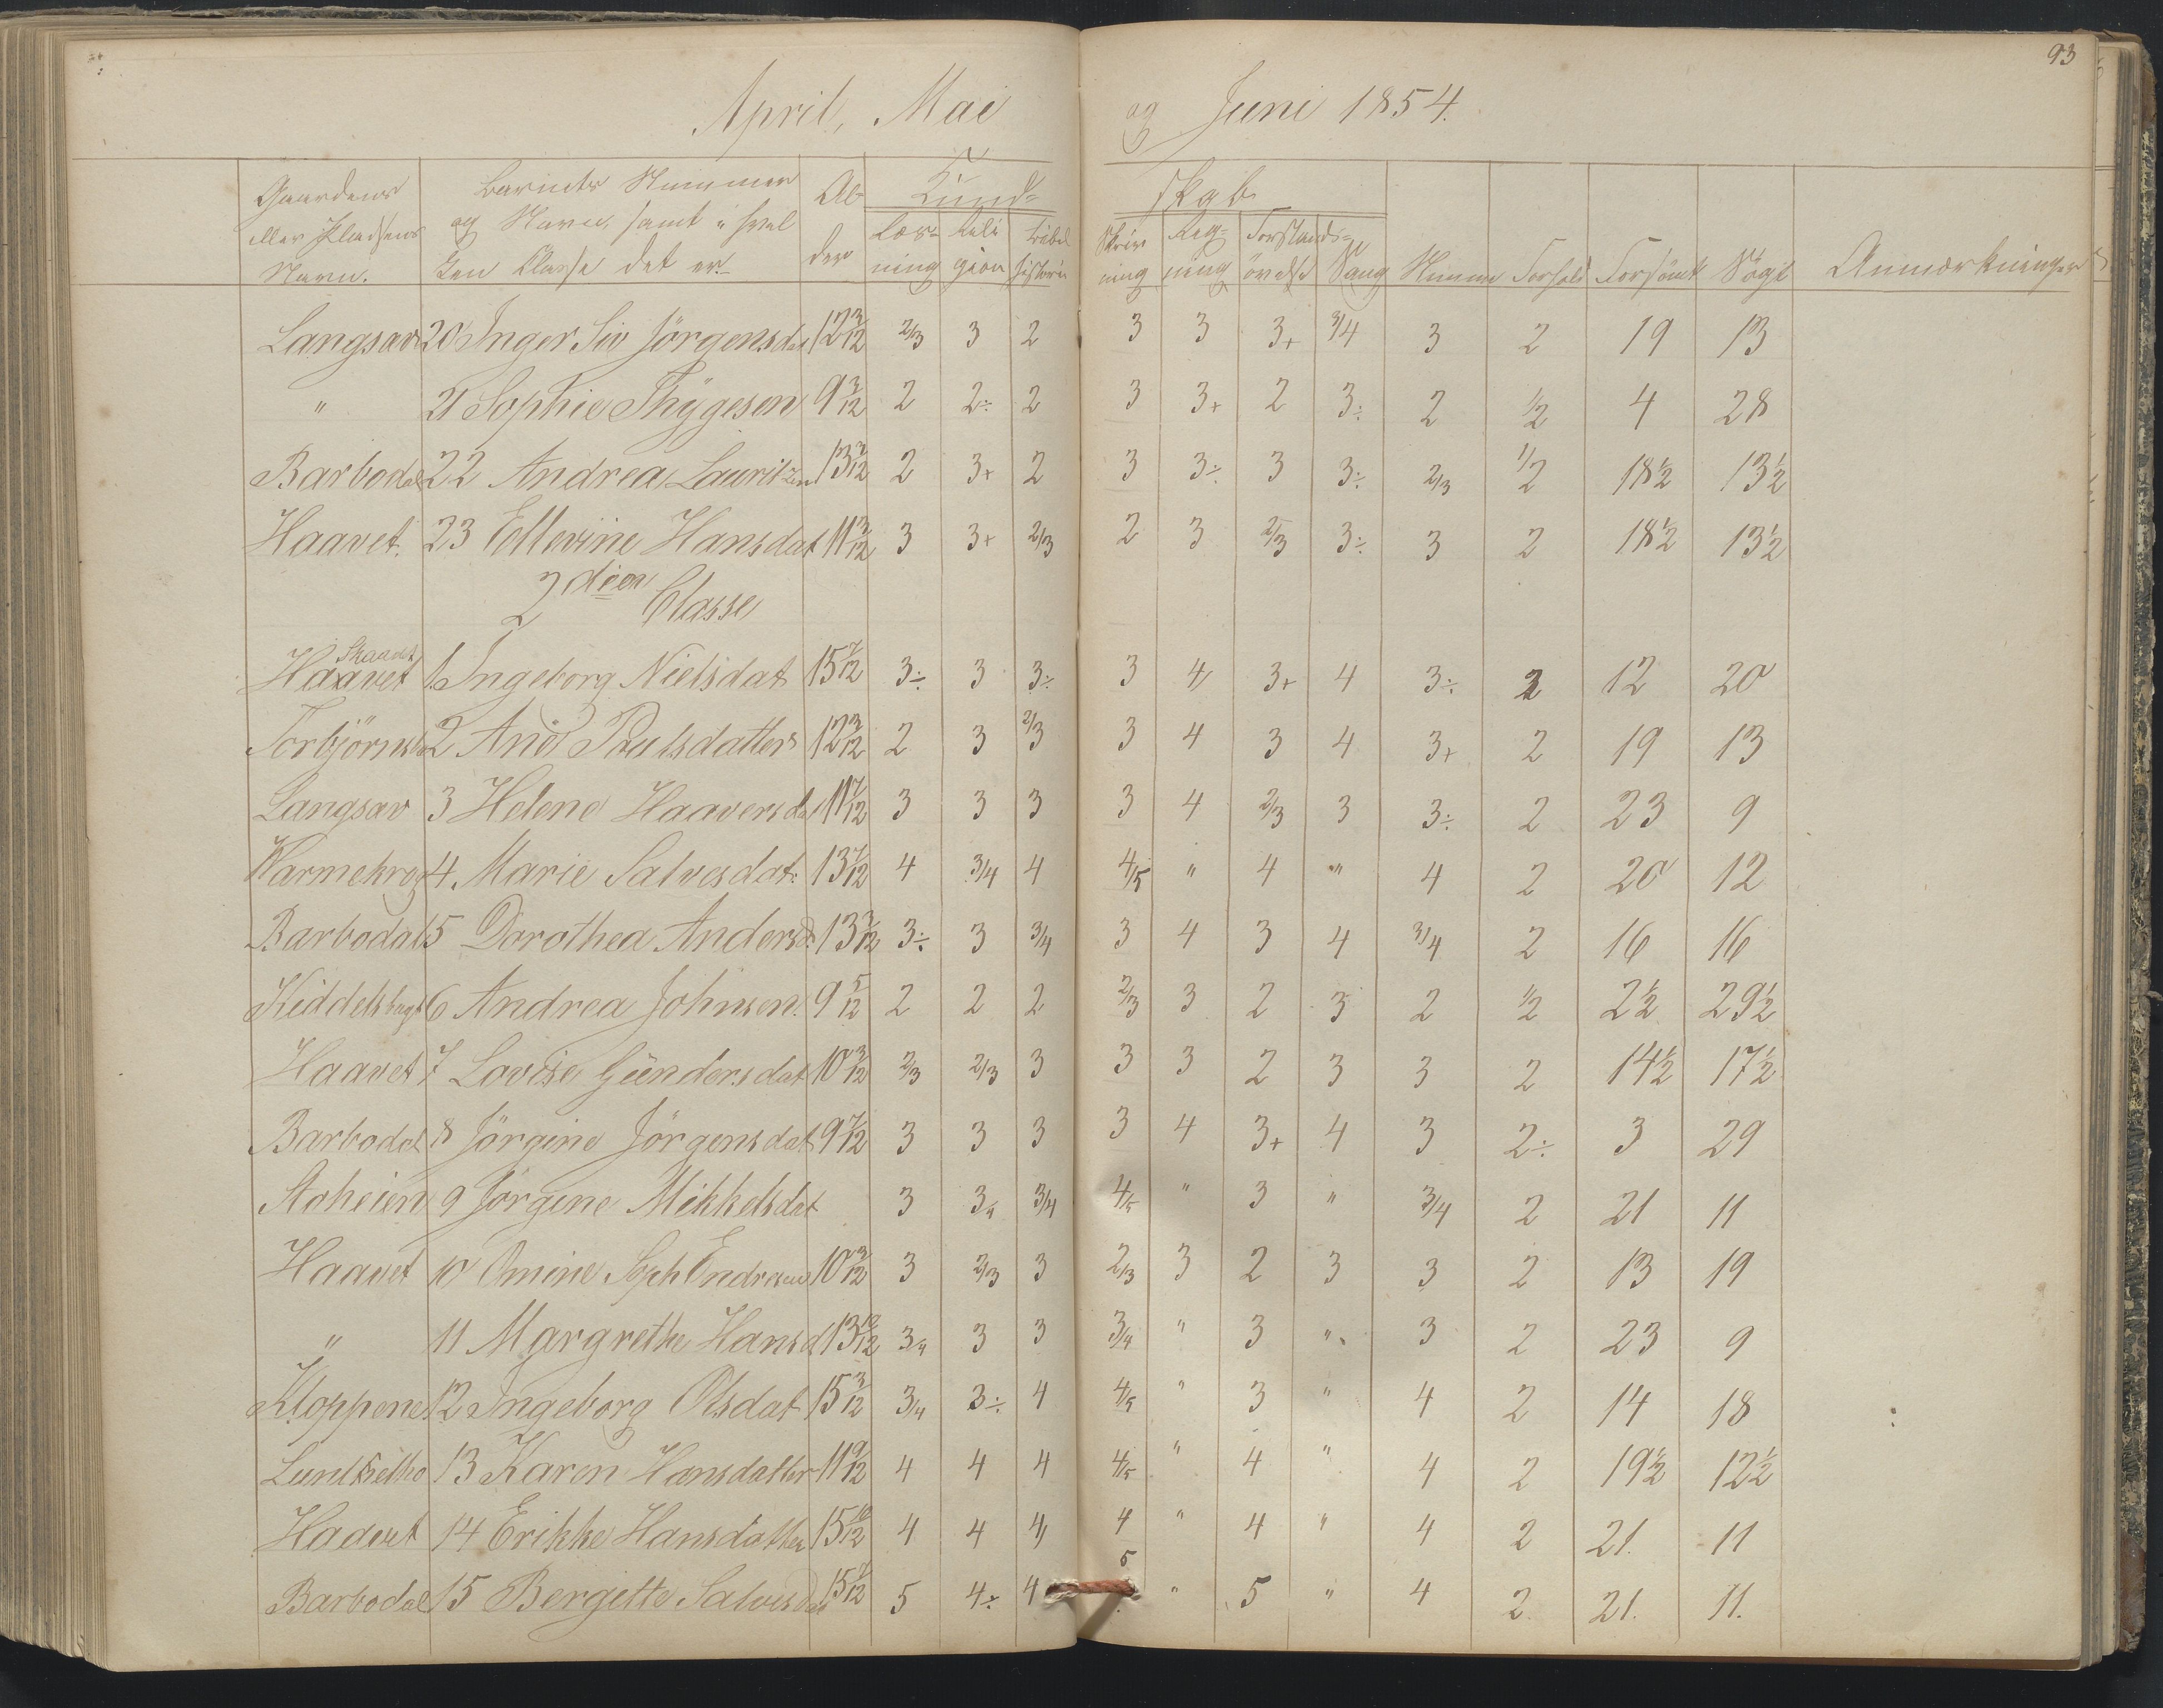 93
April, Mai og Juni 1854.
Gaardens eller Pladsens Navn. Barnets Nummer og Navn, samt i hvilken Classe det er. Alder Kundskab Læsning Religion Bibelhistorie Skrivning Regning Forstandsøvelse Sang Nemme Forhold Forsömt Sögt Anmærkninger
Langsav 20 Inger Siv Jörgensdat 12 3/12 2/3 3 2 3 3 3+ 3/4 3 2 19 13
" 21 Sophie Thygesen 9 3/12 2 2÷ 2 3 3+ 2 3÷ 2 1/2 4 28
Barbodal 22 Andrea Lauritzen 13 3/12 2 3+ 2 3 3÷ 3 3÷ 2/3 1/2 18 1/2 13 1/2
Haavet. 23 Ellevine Hansdat 11 3/12 3 3+ 2/3 2 3 2/3 3÷ 3 2 18 1/2 13 1/2
2den Classe
Haavet 1. Ingeborg Nielsdat 15 7/12 3÷ 3 3÷ 3 4 3+ 4 3÷ 2 12 20
Torbjörnsbo 2 Ane Paulsdatter 12 3/12 2 3 2/3 3 4 3 4 3+ 2 19 13
Langsav 3 Helene Haaversdat 11 7/12 3 3 3 3 4 2/3 3 3÷ 2 23 9
Warmekrog 4. Marie Salvesdat: 13 7/12 4 3/4 4 4/5 " 4 " 4 2 20 12
Barbodal 5 Dorothea Andersd. 13 3/12 3÷ 3 3/4 3 4 3 4 3/4 2 16 16
6 Andrea Johnsen. 9 5/12 2 2 2 2/3 3 2 3 2 1/2 2 1/2 29 1/2
Haavet 7 Lovise Gündersdat 10 3/12 2/3 2/3 3 3 3 2 3 3 2 14 1/2 17 1/2
Barbodal 8 Jörgine Jörgensdat 9 7/12 3 3 3 3 4 3+ 4 3 2÷ 3 29
Stoheien 9 Jörgine Mikkelsdat 3 3/4 3/4 4/5 " 3 " 3/4 2 21 11
Haavet 10 Omine Soph Endresen 10 3/12 3 2/3 3 2/3 3 2 3 3 2 13 19
" 11 Margrethe Hansd 13 10/12 3/4 3 3 3/4 " 3 " 3 2 23 9
Kloppene 12 Ingeborg Olsdat 15 3/12 3/4 3÷ 4 4/5 " 3 " 4 2 14 18
13 Karen Hansdatter 11 9/12 4 4 4 4/5 " 4 " 4 2 19 1/2 12 1/2
Haavet 14 Erikke Hansdatter 15 10/12 4 4 4 4 " 4 " 4 2 21. 11
Barbodal 15 Bergette Salvesdat 15 7/12 5 4÷ 4 5 " 5 " 4 2. 21. 11.